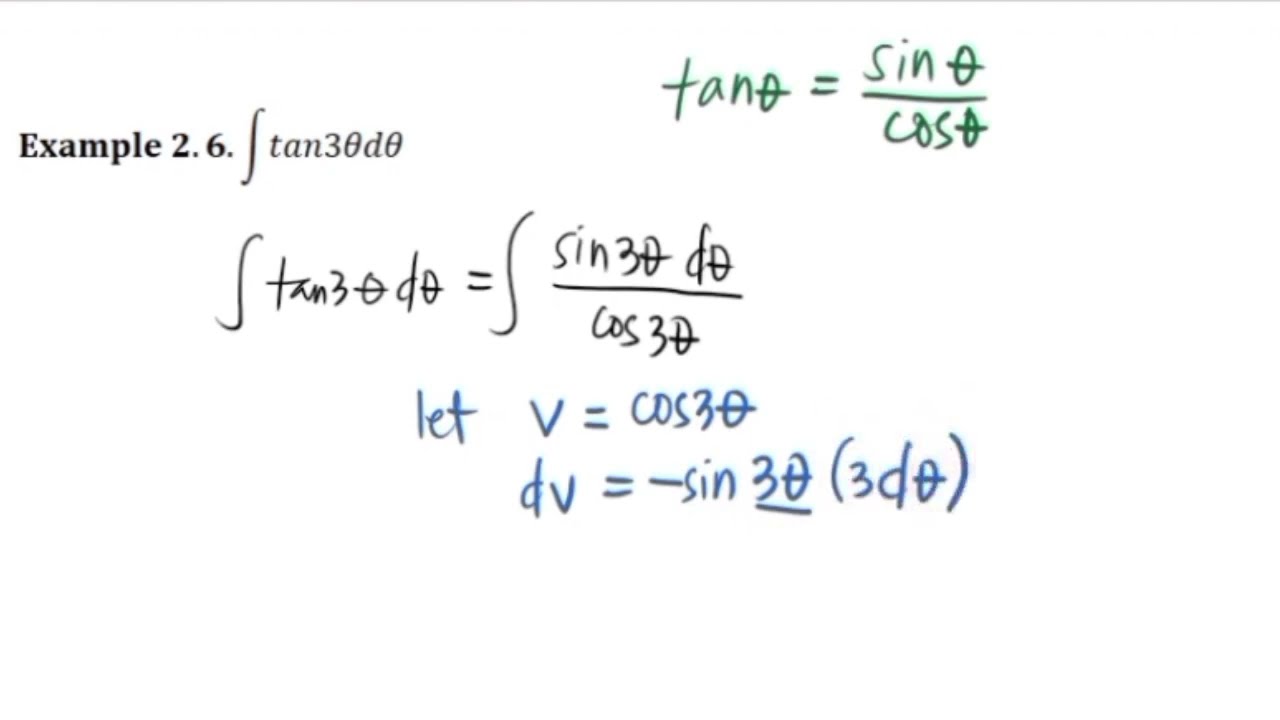 tanθ = sin θ / cosθ
Example 2. 6. ∫ tan3θdθ
∫ tan3θ dθ = ∫ sin3θ dθ / cos3θ
let v = cos3θ
dv = -sin 3θ (3dθ)